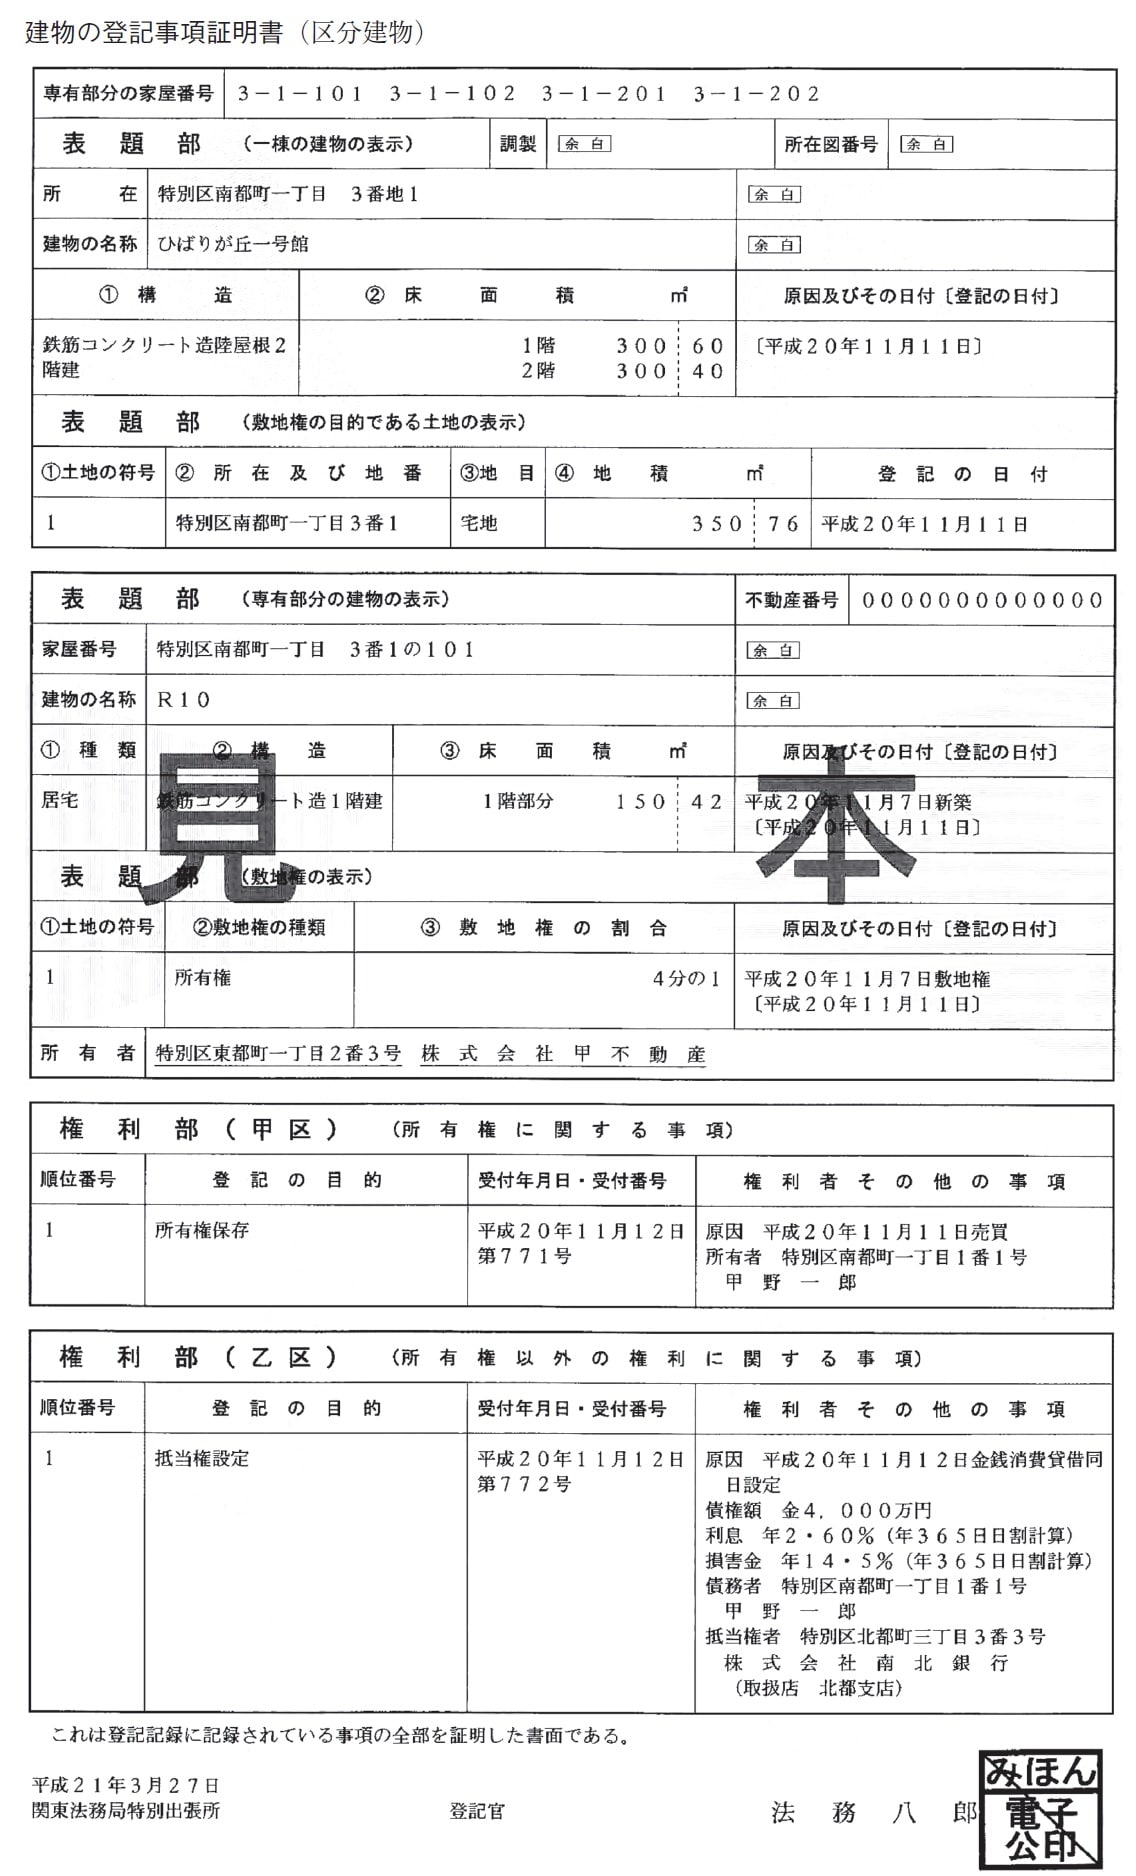 建物の登記事項証明書（区分建物）
専有部分の家屋番号 ３－１－１０１ ３－１－１０２ ３－１－２０１ ３－１－２０２
表題部 （一棟の建物の表示） 調製 余白 所在図番号 余白
所在 特別区南都町一丁目 ３番地１ 余白
建物の名称 ひばりが丘一号館 余白
① 構造 ② 床面積 ㎡ 原因及びその日付〔登記の日付〕
鉄筋コンクリート造陸屋根２ １階 ３００ ６０ 〔平成２０年１１月１１日〕
階建 ２階 ３００ ４０
表題部 （敷地権の目的である土地の表示）
①土地の符号 ② 所在及び地番 ③地目 ④ 地積 ㎡ 登記の日付
１ 特別区南都町一丁目３番１ 宅地 ３５０ ７６ 平成２０年１１月１１日
表題部 （専有部分の建物の表示） 不動産番号 ０００００００００００００
家屋番号 特別区南都町一丁目 ３番１の１０１ 余白
建物の名称 Ｒ１０ 余白
① 種類 ② 構造 ③ 床面積 ㎡ 原因及びその日付〔登記の日付〕
居宅 鉄筋コンクリート造１階建 １階部分 １５０ ４２ 平成２０年１１月７日新築
〔平成２０年１１月１１日〕
見本
表題部 （敷地権の表示）
①土地の符号 ②敷地権の種類 ③ 敷地権の割合 原因及びその日付〔登記の日付〕
１ 所有権 ４分の１ 平成２０年１１月７日敷地権
〔平成２０年１１月１１日〕
所有者 特別区東都町一丁目２番３号 株式会社甲不動産
権利部（甲区） （所有権に関する事項）
順位番号 登記の目的 受付年月日・受付番号 権利者その他の事項
１ 所有権保存 平成２０年１１月１２日 原因 平成２０年１１月１１日売買
第７７１号 所有者 特別区南都町一丁目１番１号
甲野一郎
権利部（乙区） （所有権以外の権利に関する事項）
順位番号 登記の目的 受付年月日・受付番号 権利者その他の事項
１ 抵当権設定 平成２０年１１月１２日 原因 平成２０年１１月１２日金銭消費貸借同
第７７２号 日設定
債権額 金４，０００万円
利息 年２・６０％（年３６５日日割計算）
損害金 年１４・５％（年３６５日日割計算）
債務者 特別区南都町一丁目１番１号
甲野一郎
抵当権者 特別区北都町三丁目３番３号
株式会社南北銀行
（取扱店 北都支店）
これは登記記録に記録されている事項の全部を証明した書面である。
平成２１年３月２７日
関東法務局特別出張所 登記官 法務八郎
みほん
電子
公印